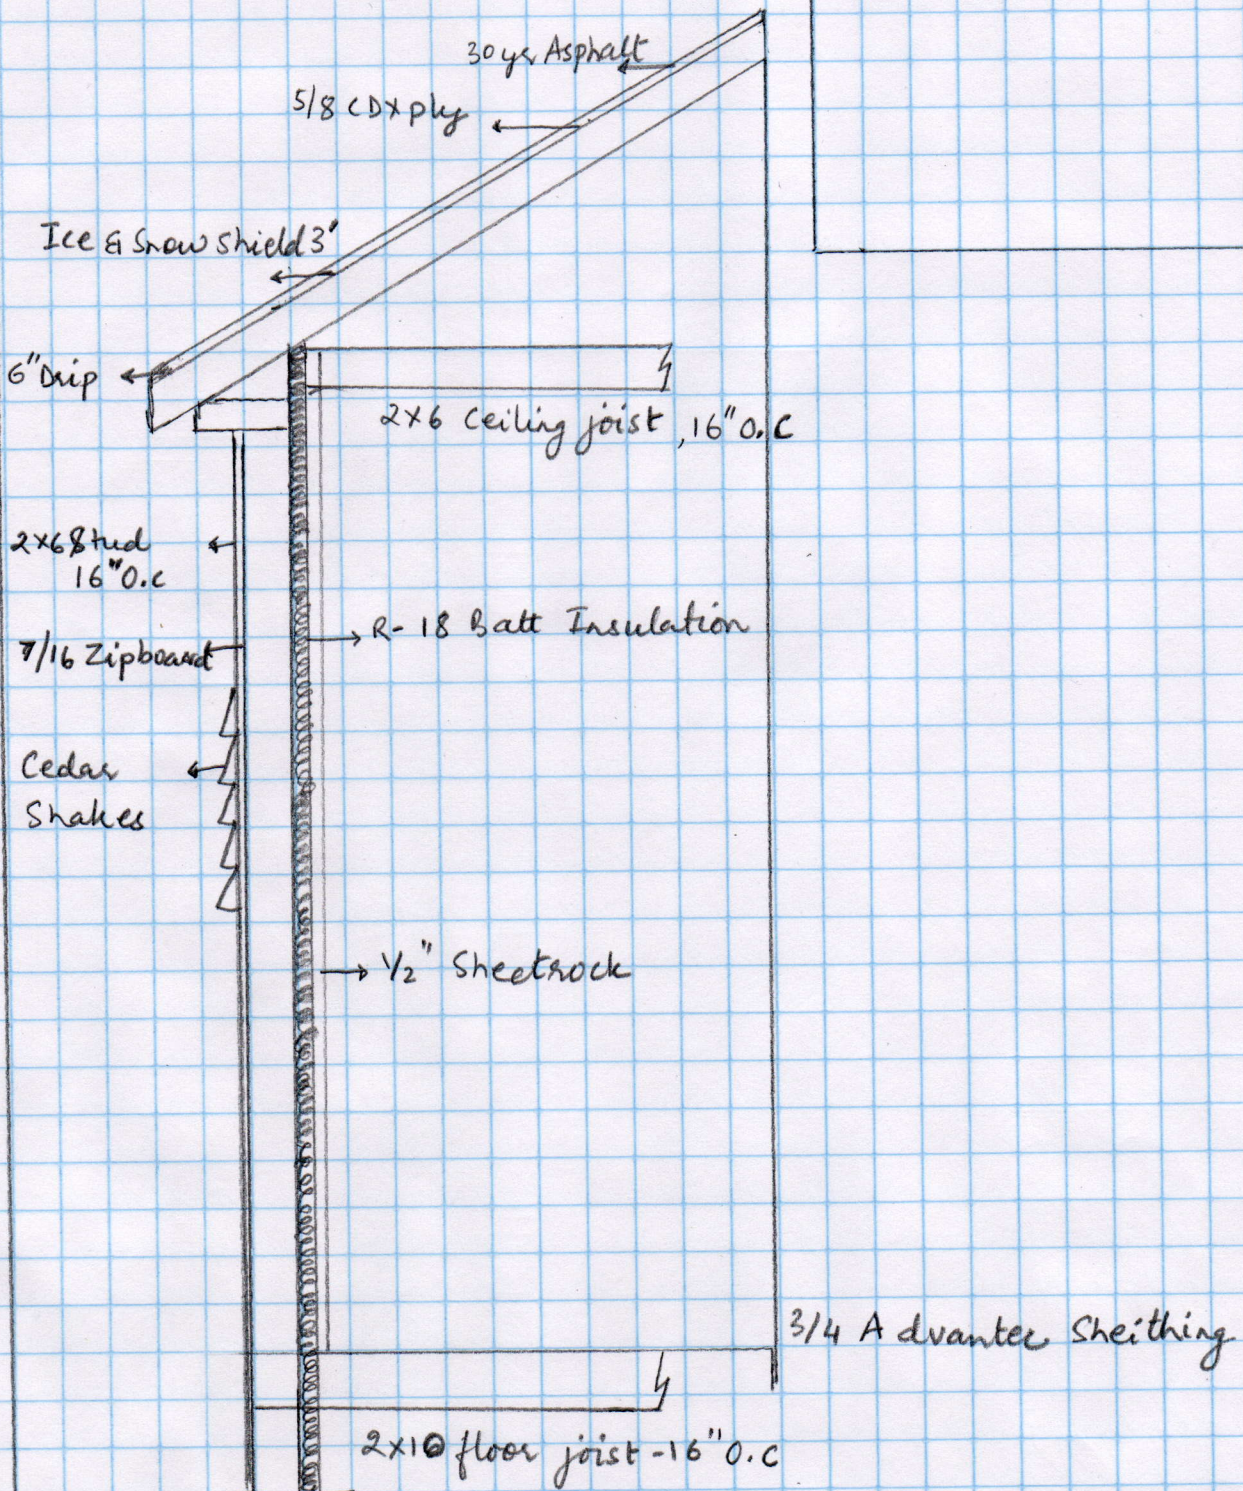 30 yr Asphalt
5/8 CDX ply
Ice & Snow Shield 3'
6" Drip
2x6 Ceiling joist, 16" O.C
2x6 Stud
16" O.C
R-18 Batt Insulation
7/16 Zipboard
Cedar
Shakes
1/2" Sheetrock
3/4 Advantec Sheithing
2x10 floor joist - 16" O.C